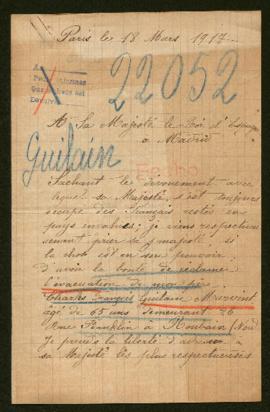 Paris le 18 Mars 1917
22052
A Sa Majesté le Roi d'Espagne
à Madrid
Guilain
Sachant le dévouement avec
lequel sa Majesté, s'est toujours
occupé des Français restés en
pays envahis; je viens respectueu
sement prier sa majesté si
la chose est en son pouvoir
d'avoir la bonté de réclamer
l'évacuation de mon père
Charles François Guilain
âgé de 65 ans demeurant 26
Rue Franklin à Roubaix (Nord
Je prends la liberté d'adresser à
sa Majesté les plus respectueuses